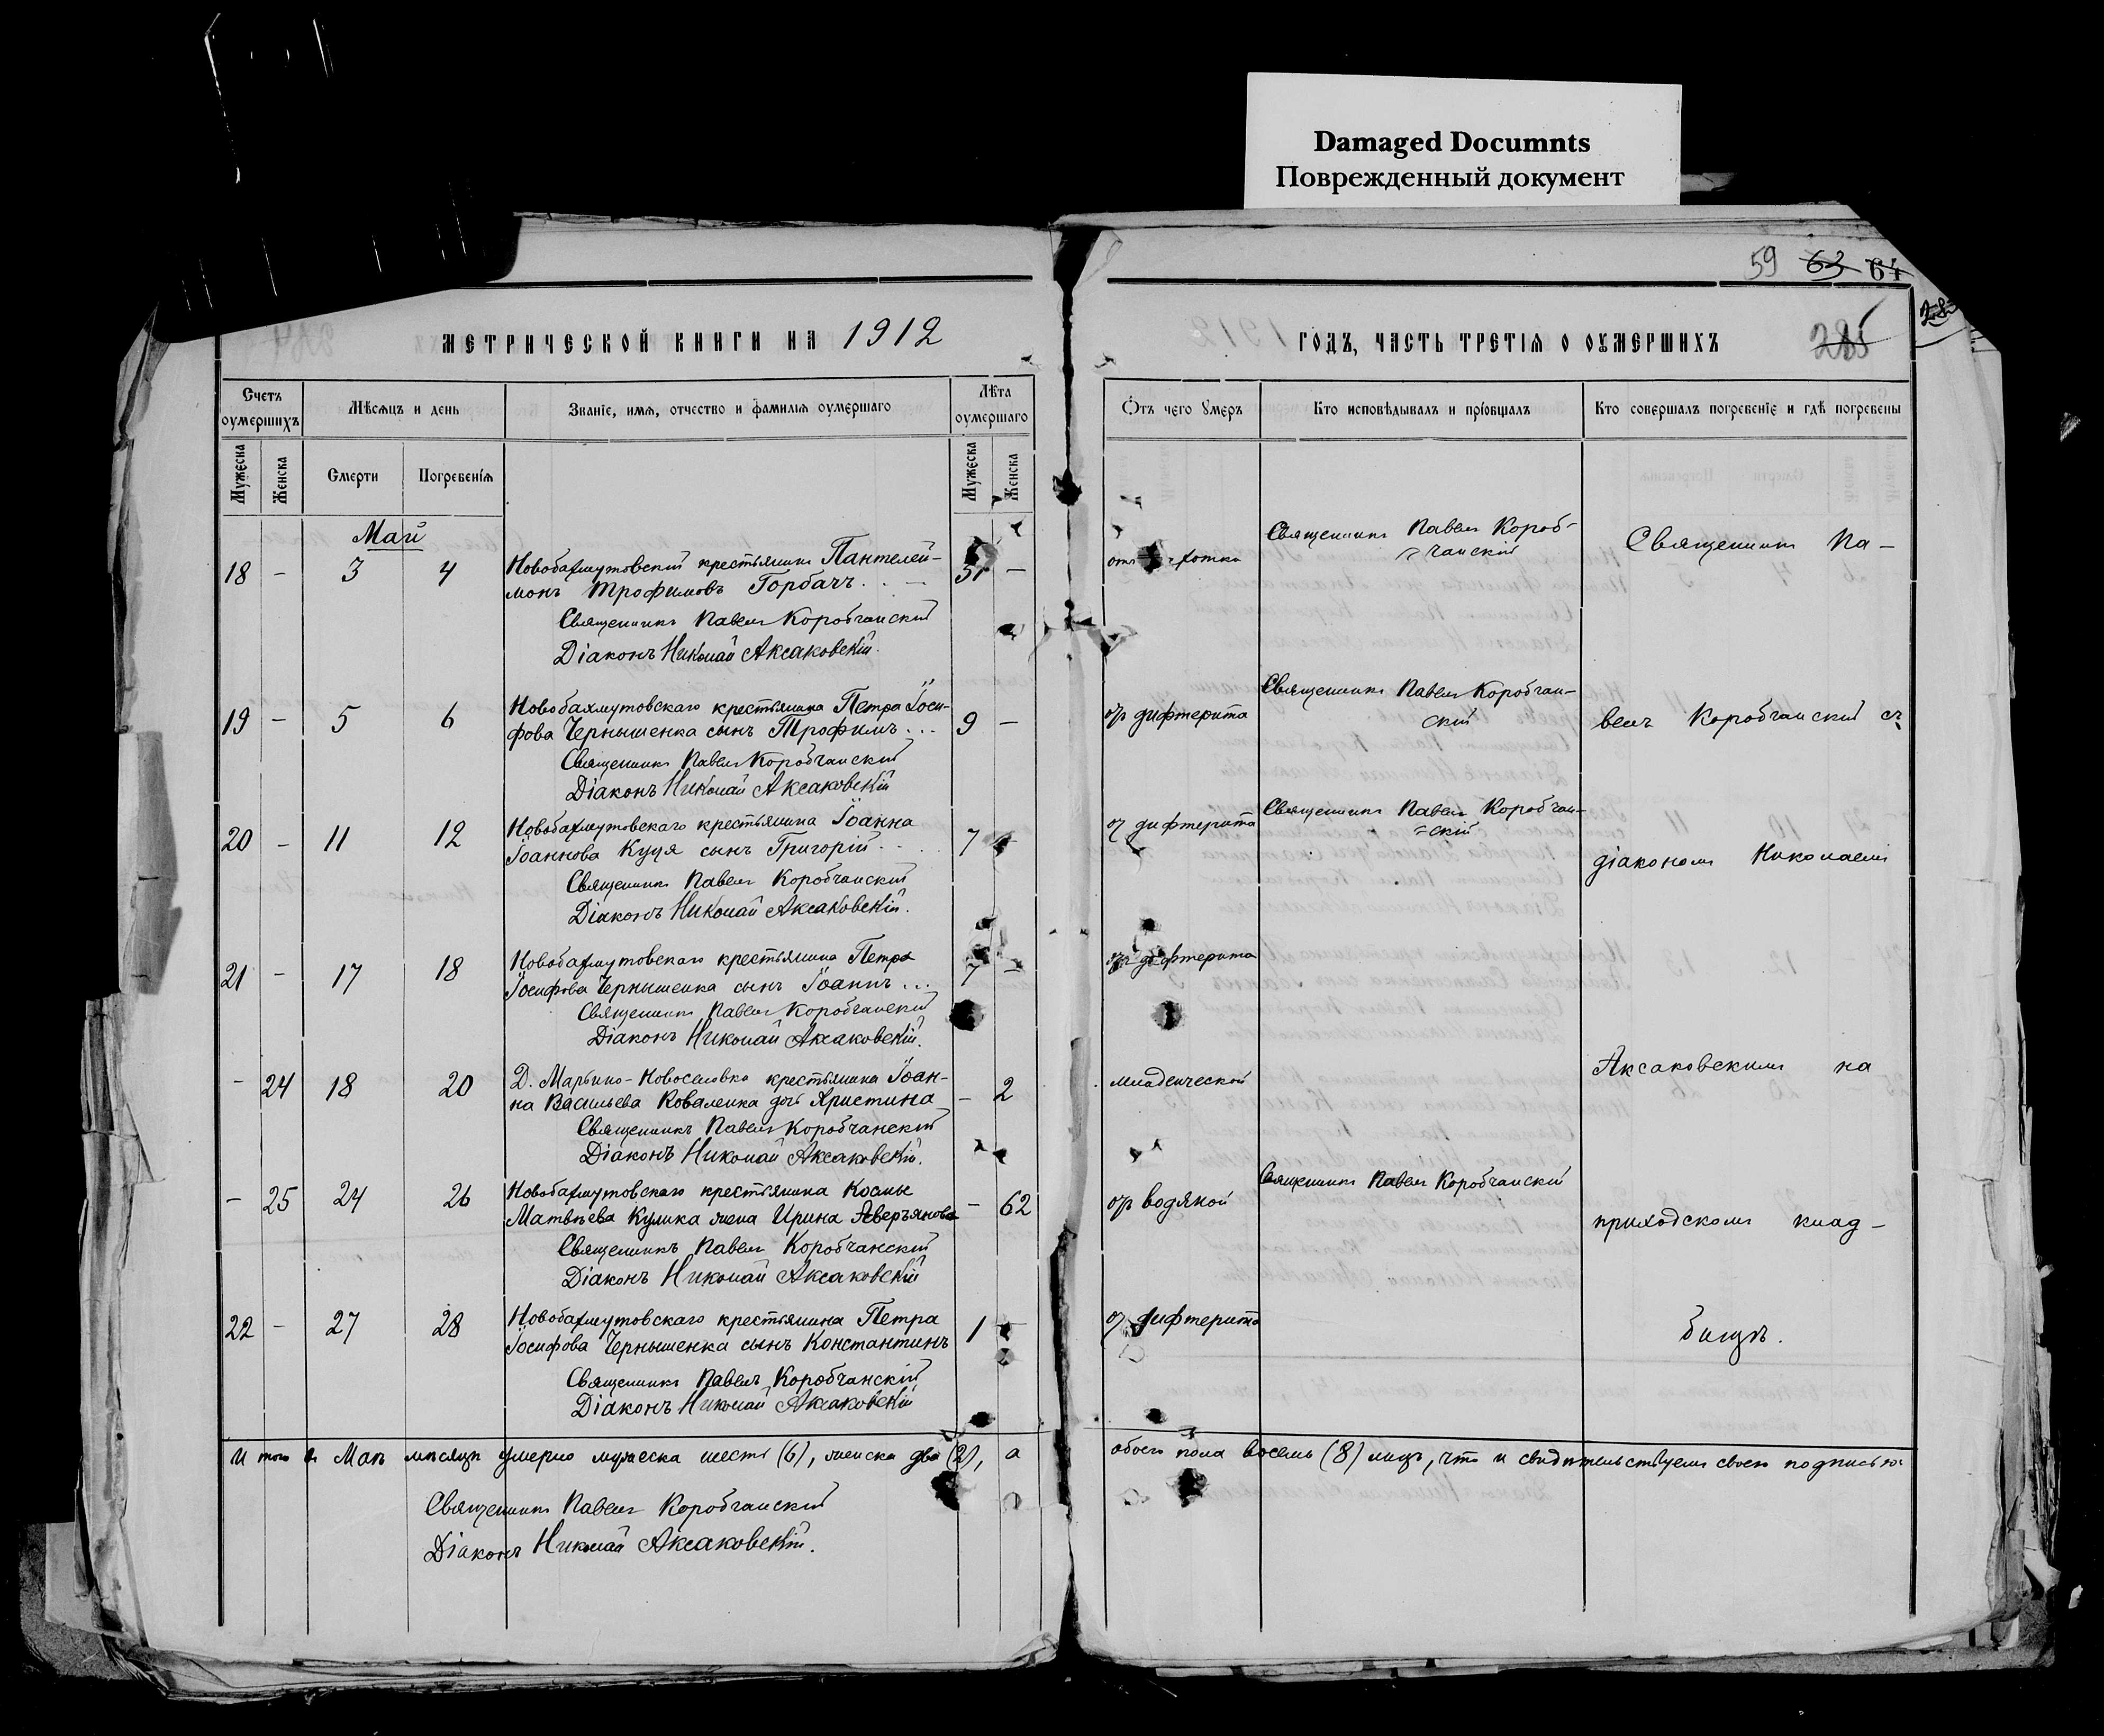 Damaged Documnts
Поврежденный документ
59 63 64
285
МЕТРИЧЕСКОЙ КНИГИ НА 1912
ГОДЪ, ЧАСТЬ ТРЕТІЯ О ОУМЕРШИХЪ
Счетъ оумершихъ
Мѣсяцъ и день
Званіе, имя, отчество и фамилія оумершаго
Лѣта оумершаго
Отъ чего умеръ
Кто исповѣдывалъ и пріобщалъ
Кто совершалъ погребеніе и гдѣ погребены
Мужеска Женска Смерти Погребенія Мужеска Женска
Май
18 - 3 4 Новобахмутовскій крестьянинъ Пантелей-
монъ Трофимовъ Горбачъ. -
Священникъ Павелъ Коробчанскій
Діаконъ Николай Аксаковскій.
отъ
Священникъ Павелъ Короб-
чанскій
Священникъ Па-
19 - 5 6 Новобахмутовскаго крестьянина Петра Іоси-
фова Чернышенка сынъ Трофимъ... 9 -
Священникъ Павелъ Коробчанскій
Діаконъ Николай Аксаковскій
отъ дифтерита
Священникъ Павелъ Коробчан-
скій
велъ Коробчанскій съ
20 - 11 12 Новобахмутовскаго крестьянина Іоанна
Іоаннова Куця сынъ Григорій... 7 -
Священникъ Павелъ Коробчанскій
Діаконъ Николай Аксаковскій.
отъ дифтерита
Священникъ Павелъ Коробчан-
скій
діакономъ Николаемъ
21 - 17 18 Новобахмутовскаго крестьянина Петра
Іосифова Чернышенка сынъ Іоаннъ... 7 -
Священникъ Павелъ Коробчанскій
Діаконъ Николай Аксаковскій.
отъ дифтерита
- 24 18 20 Д. Марьино-Новоселовка крестьянина Іоан-
на Васильева Коваленка дочь Христина - 2
Священникъ Павелъ Коробчанскій
Діаконъ Николай Аксаковскій.
младенческой
Аксаковскимъ на
- 25 24 26 Новобахмутовскаго крестьянина Космы
Матвѣева Кулика жена Ирина Аверьянова - 62
Священникъ Павелъ Коробчанскій
Діаконъ Николай Аксаковскій
отъ водяной
Священникъ Павелъ Коробчанскій
приходскомъ клад-
22 - 27 28 Новобахмутовскаго крестьянина Петра
Іосифова Чернышенка сынъ Константинъ 1 -
Священникъ Павелъ Коробчанскій
Діаконъ Николай Аксаковскій
отъ дифтерита
бищѣ.
Итого въ Маѣ мѣсяцѣ умерло мужеска шесть (6), женска два (2), а обоего пола восемь (8) лицъ, что и свидѣтельствуемъ своею подписью:
Священникъ Павелъ Коробчанскій
Діаконъ Николай Аксаковскій.